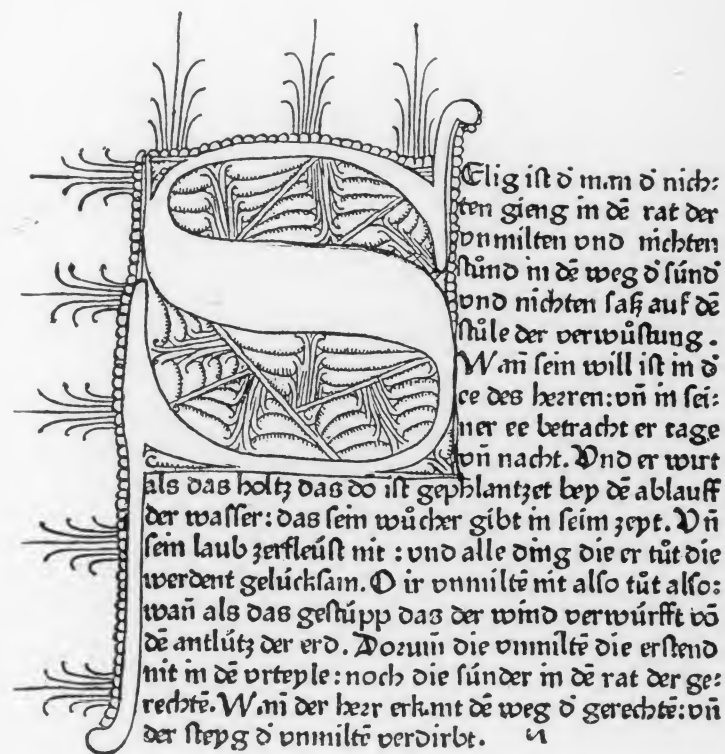 Selig ist d̄ man d̄ nich:
ten gieng in dē rat der
vnmilten vnd nichten
stůnd in dē weg d̄ súnd̄
vnd nichten saß auf dē
stůle der verwůstung.
Wan̄ sein will ist in d̄
ee des herren: vn̄ in sei:
ner ee betracht er tage
vn̄ nacht. Vnd er wirt
als das holtz das do ist gephlantzet bey dē ablauff
der wasser: das sein wůcher gibt in seim zeyt. Vn̄
sein laub zerfleúst nit: vnd alle ding die er tůt die
werdent gelúcksam. O ir vnmiltē nit also tůt also:
wan̄ als das gestúpp das der wind verwúrfft vō
dē antlútz der erd. Dorum̄ die vnmiltē die erstend
nit in dē vrteyle: noch die súnder in dē rat der ge:
rechtē. Wan̄ der herr erkant dē weg d̄ gerechtē: vn̄
der steyg d̄ vnmiltē verdirbt.